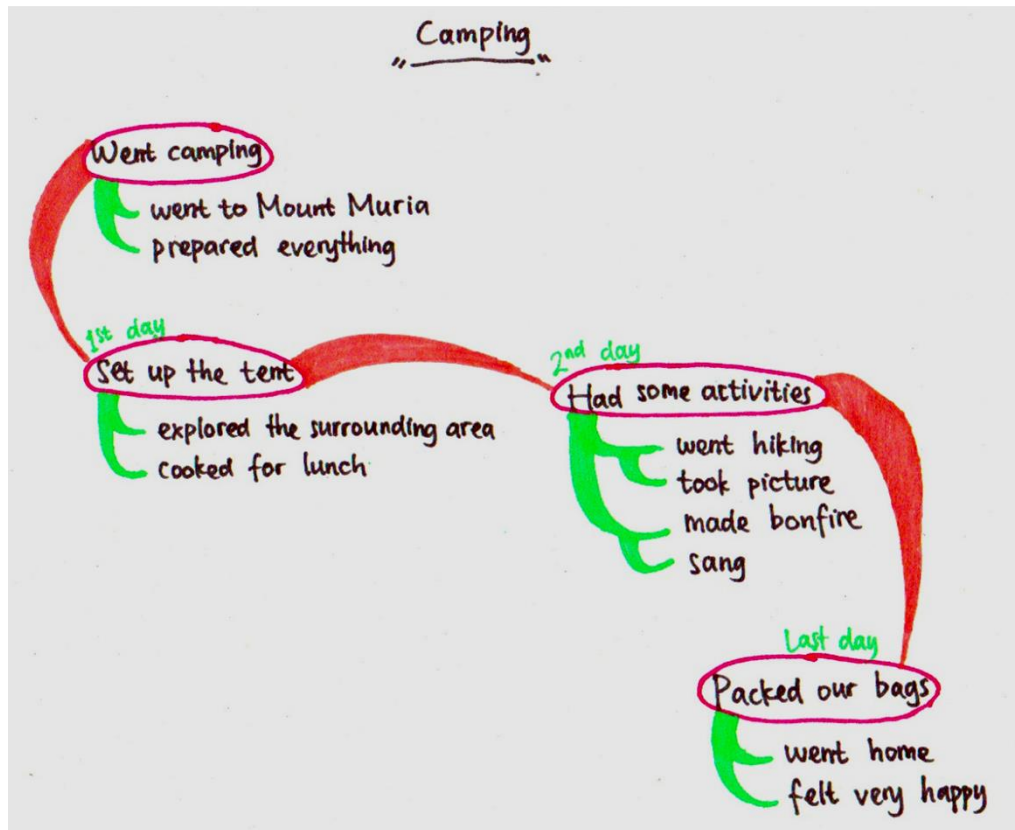 Camping
Went camping
went to Mount Muria
prepared everything
1st day
Set up the tent
explored the surrounding area
cooked for lunch
2nd day
Had some activities
went hiking
took picture
made bonfire
sang
Last day
Packed our bags
went home
felt very happy